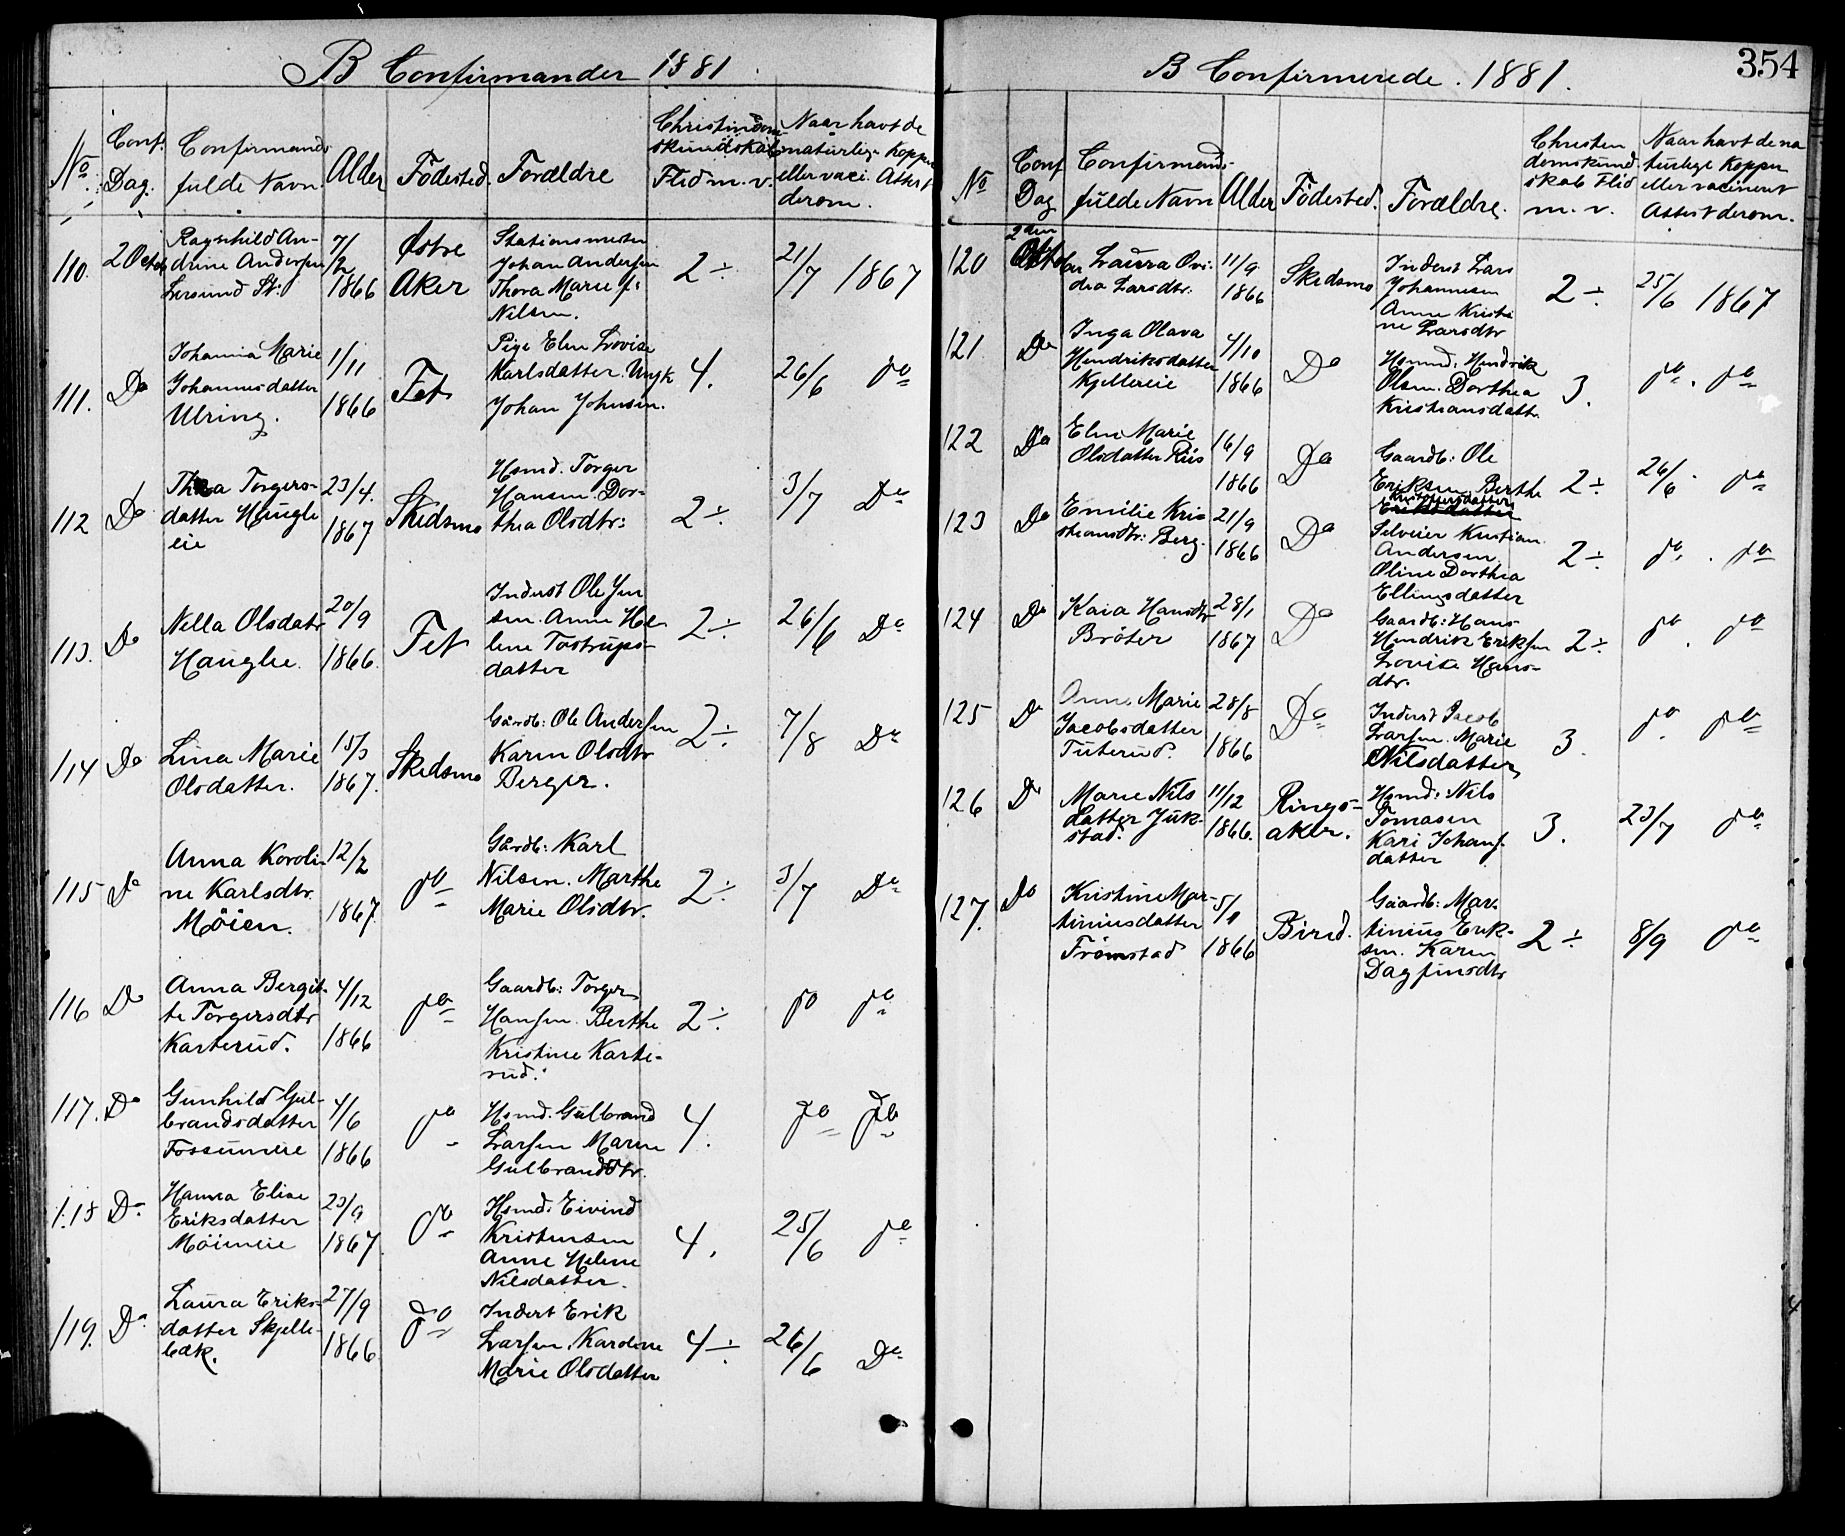 B Confirmander 1881.
No
Conf. Dag.
Confirmands fulde Navn
Alder
Födested.
Forældre
Christindom skundskab Flid m. v.
Naar havt de naturlige Kopper eller vacc. Attest derom.
110. 2 Octob
Ragnhild An-
drine Andersen
7/2 1866
Østre
Aker
Stationsmester
Johan Andersen
Thora Marie f:
Nilsen.
2÷
21/7 1867
111. Do
Johanna Marie
Johannesdatter
Ulring.
1/11 1866
Fet
Pige Elen Lovise
Karlsdatter. Ungk
Johan Johnsen.
4.
26/6 do
112 Do
Torgers-
datter Haugle
eie
23/4. 1867
Skedsmo
Hsmd. Torger
Hansen. Dor-
thea Olsdtr:
2÷
3/7 Do
113. Do
Nella Olsdatr
Hauglie.
20/9 1866.
Fet
Inderst Ole Jen
sen. Anne He-
lene Tostrups-
datter
2÷
26/6 Do
114 Do
Lina Marie
Olsdatter.
15/3 1867.
Skedsmo
Gårdb: Ole Andersen
Karen Olsdtr
Berger.
2÷
7/8 Do
115 Do
Anna Karoli-
ne Karlsdtr.
Möien.
12/2 1867.
do
Gårdb: Karl
Nilsen. Marthe
Marie Olsdtr.
2÷
3/7 Do
116 Do
Anna Bergit-
te Torgersdtr
Karterud.
4/12 1866
do
Gaardb: Torger
Hansen. Berthe
Kristine Karte-
rud.
2÷
do do
117. Do
Gunhild Gul-
brandsdatter
Fossumeie
4/6 1866
do
Hsmd. Gulbrand
Larsen Maren
Gulbrandsdtr.
4.
do do
118 Do
Hanna Elise
Eriksdatter
Möieneie
23/9 1867.
do
Hsmd. Eivind
Kristensen
Anne Helene
Nilsdatter.
4.
25/6 do
119. Do
Laura Eriks-
datter Skjelle-
bæk.
27/9 1866
do
Indert Erik
Larsen, Karoline
Marie Olsdatter
4÷
26/6 Do
B Confirmerede. 1881.
354
No
Conf Dag
Confirmands fulde Navn
Alder
Födested.
Forældre.
Christen domskund skab Flid m. v.
Naar havt de na turlige Kopper eller vacineret Attest derom.
120 2den Oktober
Laura Ovi-
dia Larsdtr.
11/9 1866
Skedsmo
Inderst Lars
Johannesen
Anne Kristi
ne Larsdtr
2÷
25/6 1867
121. Do
Inga Olava
Hendriksdatter
Kjellereie
4/10 1866
Do
Hsmd. Hendrik
Olsen. Dorthea
Kristiansdattr.
3.
do. do
122 Do
Elen Marie
Olsdatter Riis
16/9 1866
Do
Gaardb: Ole
Eriksen Berthe
Kristoffersdatter
2÷
26/6 do
123 Do
Emilie Kris
tiansdtr: Berg.
21/9 1866
Do
Selveier Kristian
Andersen
Oline Dorthea
Ellingsdatter
2÷
do. do
124 Do
Kaia Hansdtr
Bröter
28/1 1867
Do
Gaardb: Hans
Hendrik Eriksen
Lovise Hans-
dtr.
2÷
do. do
125 Do
Anne Marie
Jacobsdatter
Tuterud.
28/8 1866
Do
Inderst Jacob
Larsen. Marie
Nilsdatter
3.
do. do
126 Do
Marie Nils
datter Juk-
stad.
11/12 1866.
Rings-
aker.
Hsmd: Nils
Tomasen
Kari Johans-
datter
3.
23/7 do
127. Do
Kristine Mar-
tiniusdatter
Frömstad
1866
Birid.
Gaardb: Mar-
tinius Erik-
sen. Karen
Dagfinsdtr
2÷
8/9 do